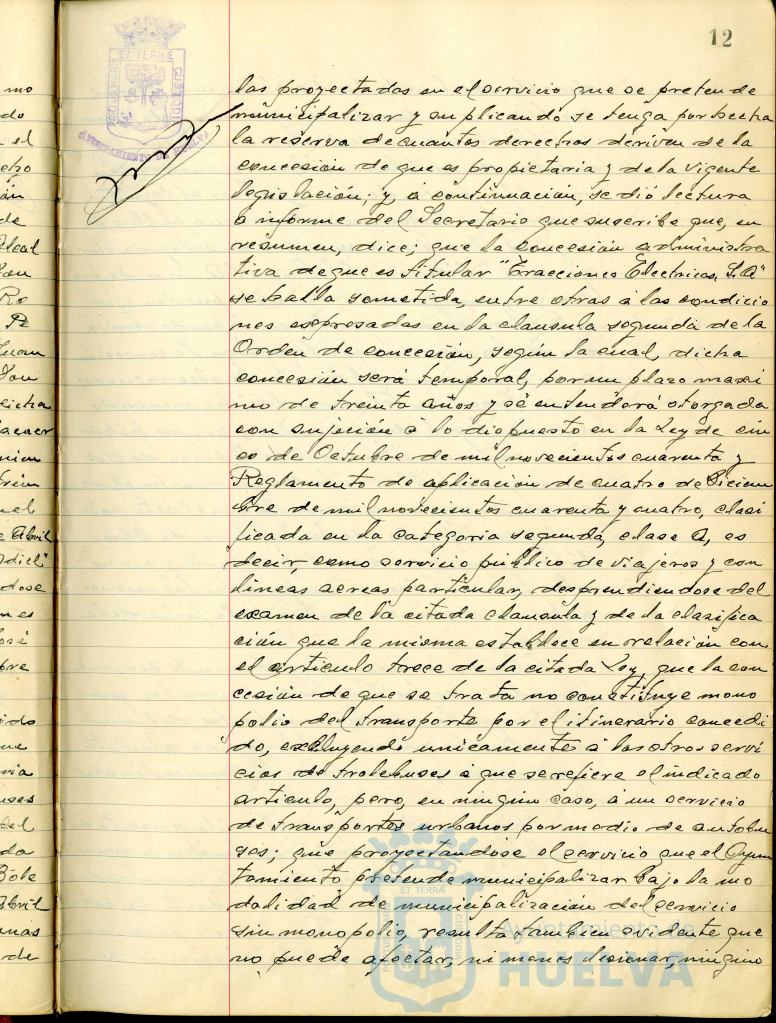 12
ET TERRÆ
PORTUS MARIS
CUSTODIA
AYUNTAMIENTO DE HUELVA
las proyectadas en el servicio que se pretende
municipalizar y suplicando se tenga por hecha
la reserva de cuantos derechos deriven de la
concesión de que es propietaria y de la vigente
legislación; y, a continuación, se dió lectura
a informe del Secretario que suscribe que, en
resumen, dice; que la concesión administra
tiva de que es titular "Tracciones Electricas, S.A"
se halla sometida, entre otras a las condicio
nes expresadas en la clausula segunda de la
Orden de concesión, según la cual, dicha
concesión será temporal, por un plazo maxi
mo de treinta años y se entenderá otorgada
con sujeción a lo dispuesto en la Ley de cin
co de Octubre de mil novecientos cuarenta y
Reglamento de aplicación de cuatro de Diciem
bre de mil novecientos cuarenta y cuatro, clasi
ficada en la categoria segunda, clase A, es
decir, como servicio público de viajeros y con
lineas aereas particular, desprendiendose del
examen de la citada clausula y de la clasifica
ción que la misma establece en relación con
el articulo trece de la citada Ley, que la con
cesión de que se trata no constituye mono
polio del transporte por el itinerario concedi
do, excluyendo unicamente a los otros servi
cios de trolebuses a que se refiere el indicado
articulo, pero, en ningún caso, a un servicio
de transportes urbanos por medio de autobu
ses; que proyectandose el servicio que el Ayun
tamiento pretende municipalizar bajo la mo
dalidad de municipalización del servicio
sin monopolio, resulta tambien evidente que
no puede afectar, ni menos lesionar, ningúno
Ayuntamiento de
HUELVA